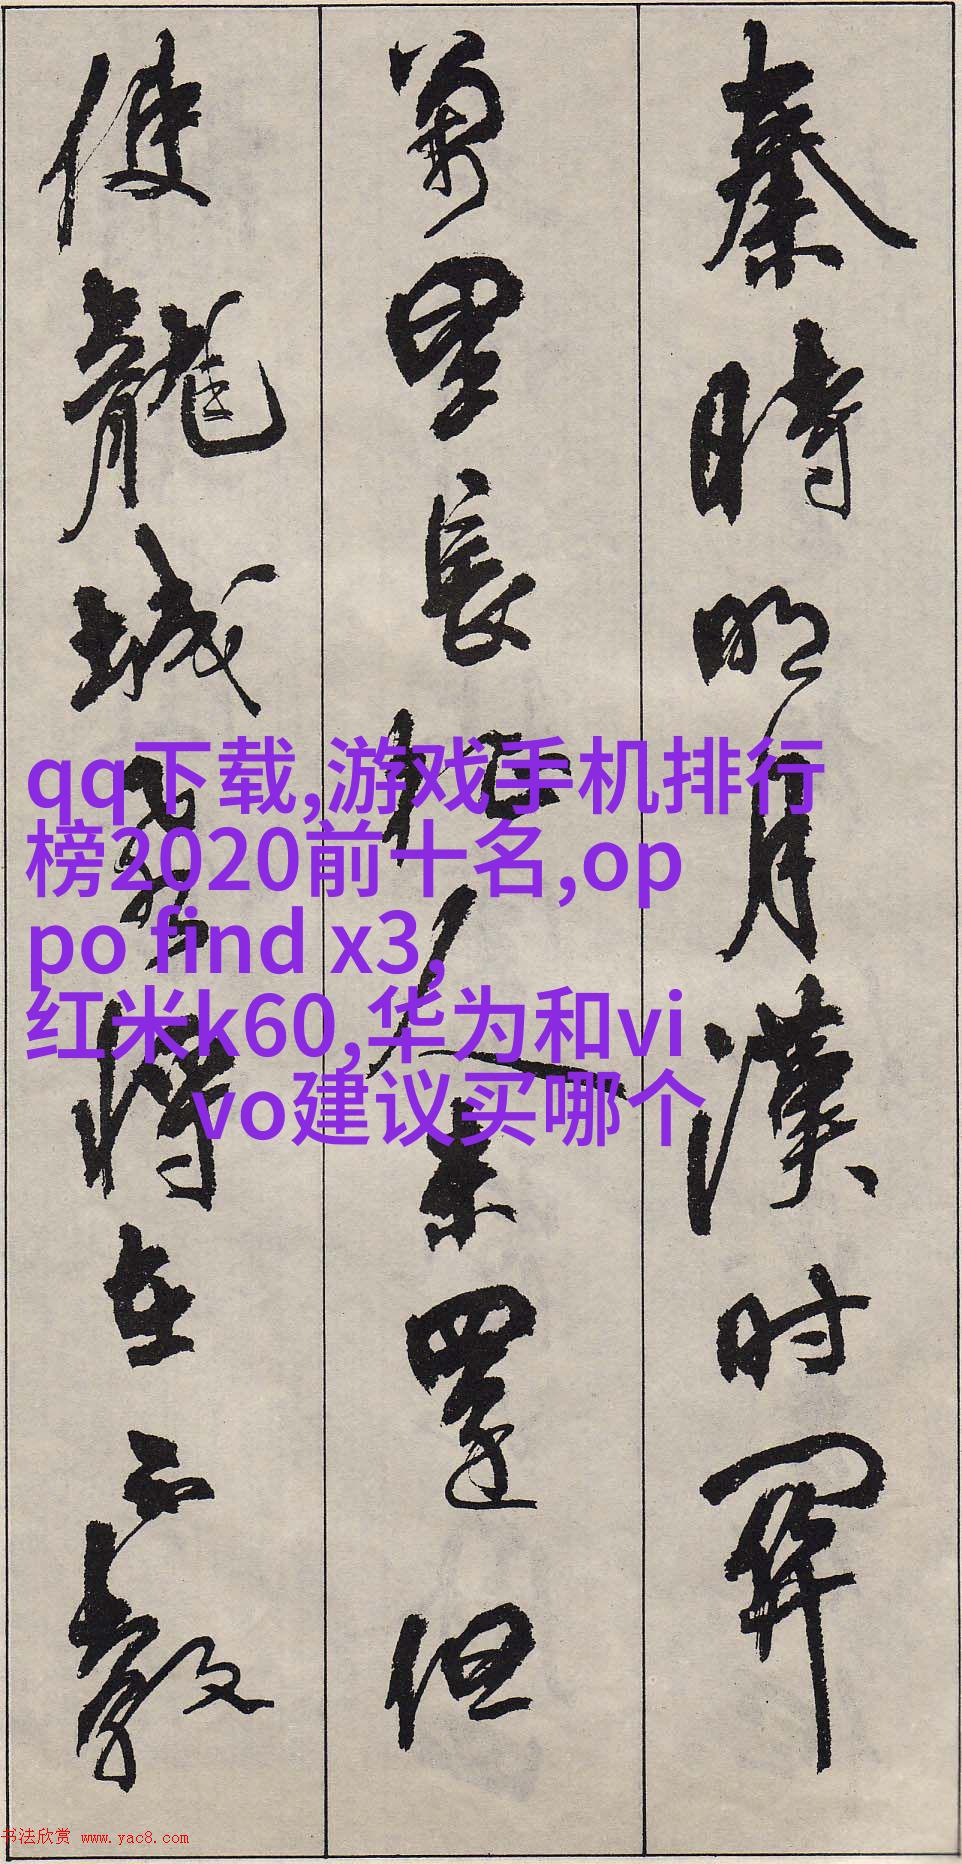 秦時明月漢时關
萬里長征人未還但
使龍城飛將在不教
qq下载,游戏手机排行
榜2020前十名,op
po find x3,
红米k60,华为和vi
vo建议买哪个
书法欣赏 www.yac8.com